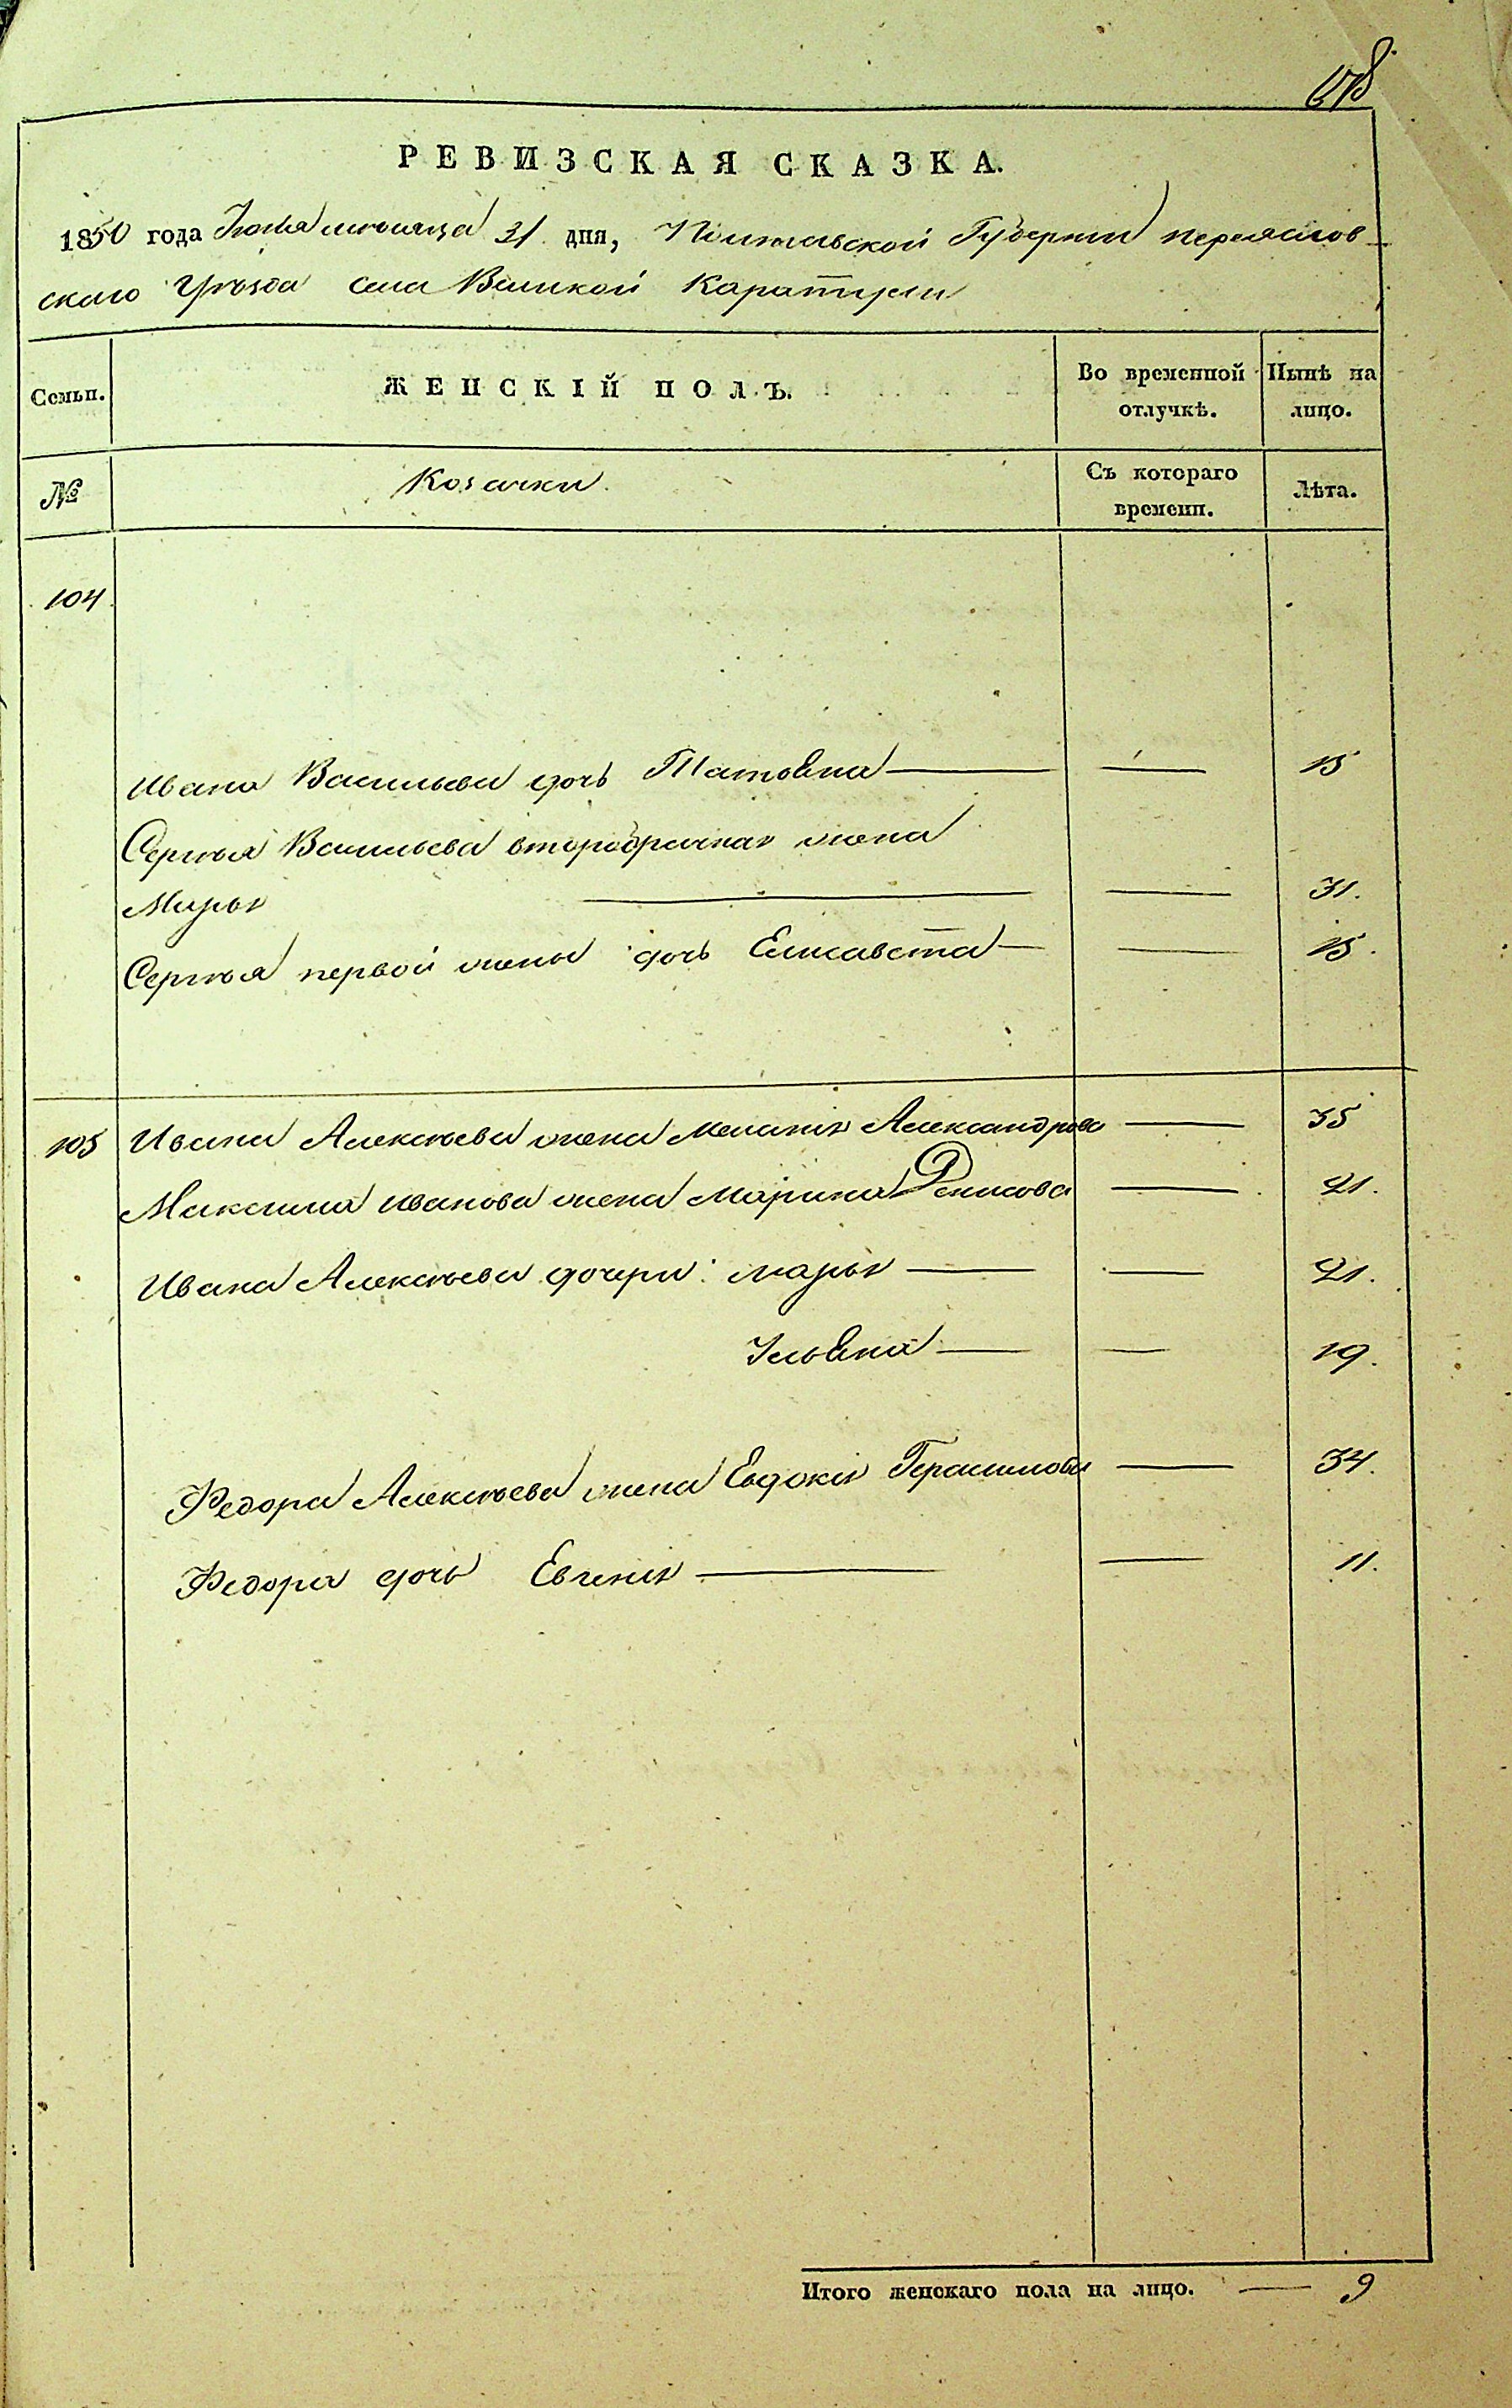 678
РЕВИЗСКАЯ СКАЗКА.
1850 года Іюля мѣсяца 31 дня, Полтавской Губерніи переяслов-
скаго Уѣзда села Великой Каратули
Семьи.
ЖЕНСКІЙ ПОЛЪ.
Во временной отлучкѣ.
Нынѣ на лицо.
№
Козачки.
Съ котораго времени.
Лѣта.
104.
Ивана Васильева дочь Татояна — — 15
Сергѣя Васильева второбрачная жена
Марья — — 31.
Сергѣя первой жены дочь Елисавета — — 15.
105 Ивана Алексѣева жена Меланія Александрова — 35
Максима Иванова жена Марина Денисова — 21.
Ивана Алексѣева дочери: марья — — 21.
Ульяна — — 19.
Федора Алексѣева жена Евдокія Герасимова — 34.
Федора дочь Евгенія — — 11.
Итого женскаго пола на лицо. — 9